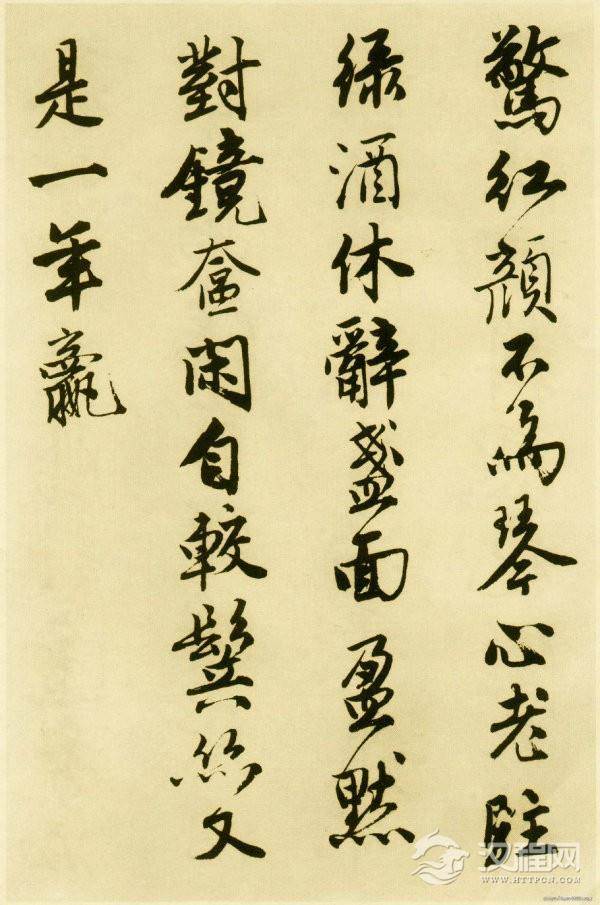 驚紅顔不為琴心老駐
綠酒休辭盞面盈默
對鏡奩閑自較鬢絲又
是一年贏
汉程网
WWW.HTTPCN.COM